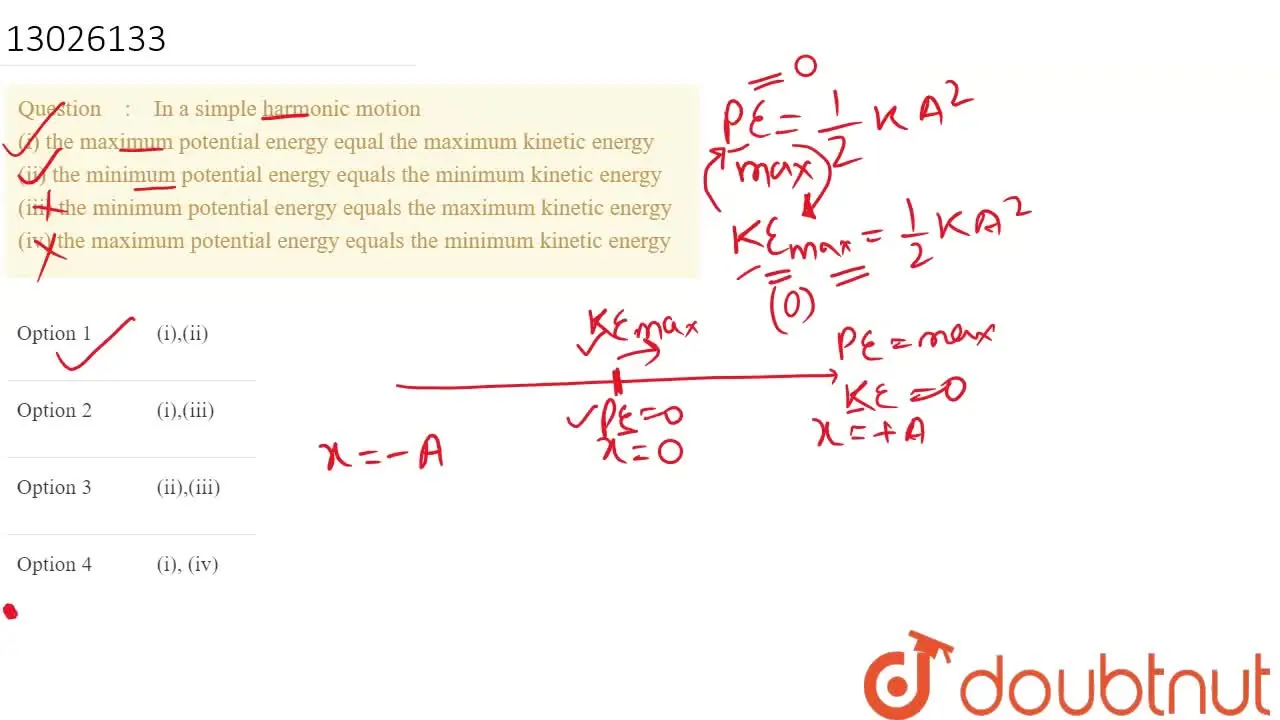 13026133
Question : In a simple harmonic motion
(i) the maximum potential energy equal the maximum kinetic energy
(ii) the minimum potential energy equals the minimum kinetic energy
(iii) the minimum potential energy equals the maximum kinetic energy
(iv) the maximum potential energy equals the minimum kinetic energy
Option 1 (i),(ii)
Option 2 (i),(iii)
Option 3 (ii),(iii)
Option 4 (i), (iv)
= 0
PE = 1/2 KA²
max
KEmax = 1/2 KA²
(0)
KEmax
PE = max
KE = 0
x = +A
PE = 0
x = 0
x = -A
doubtnut